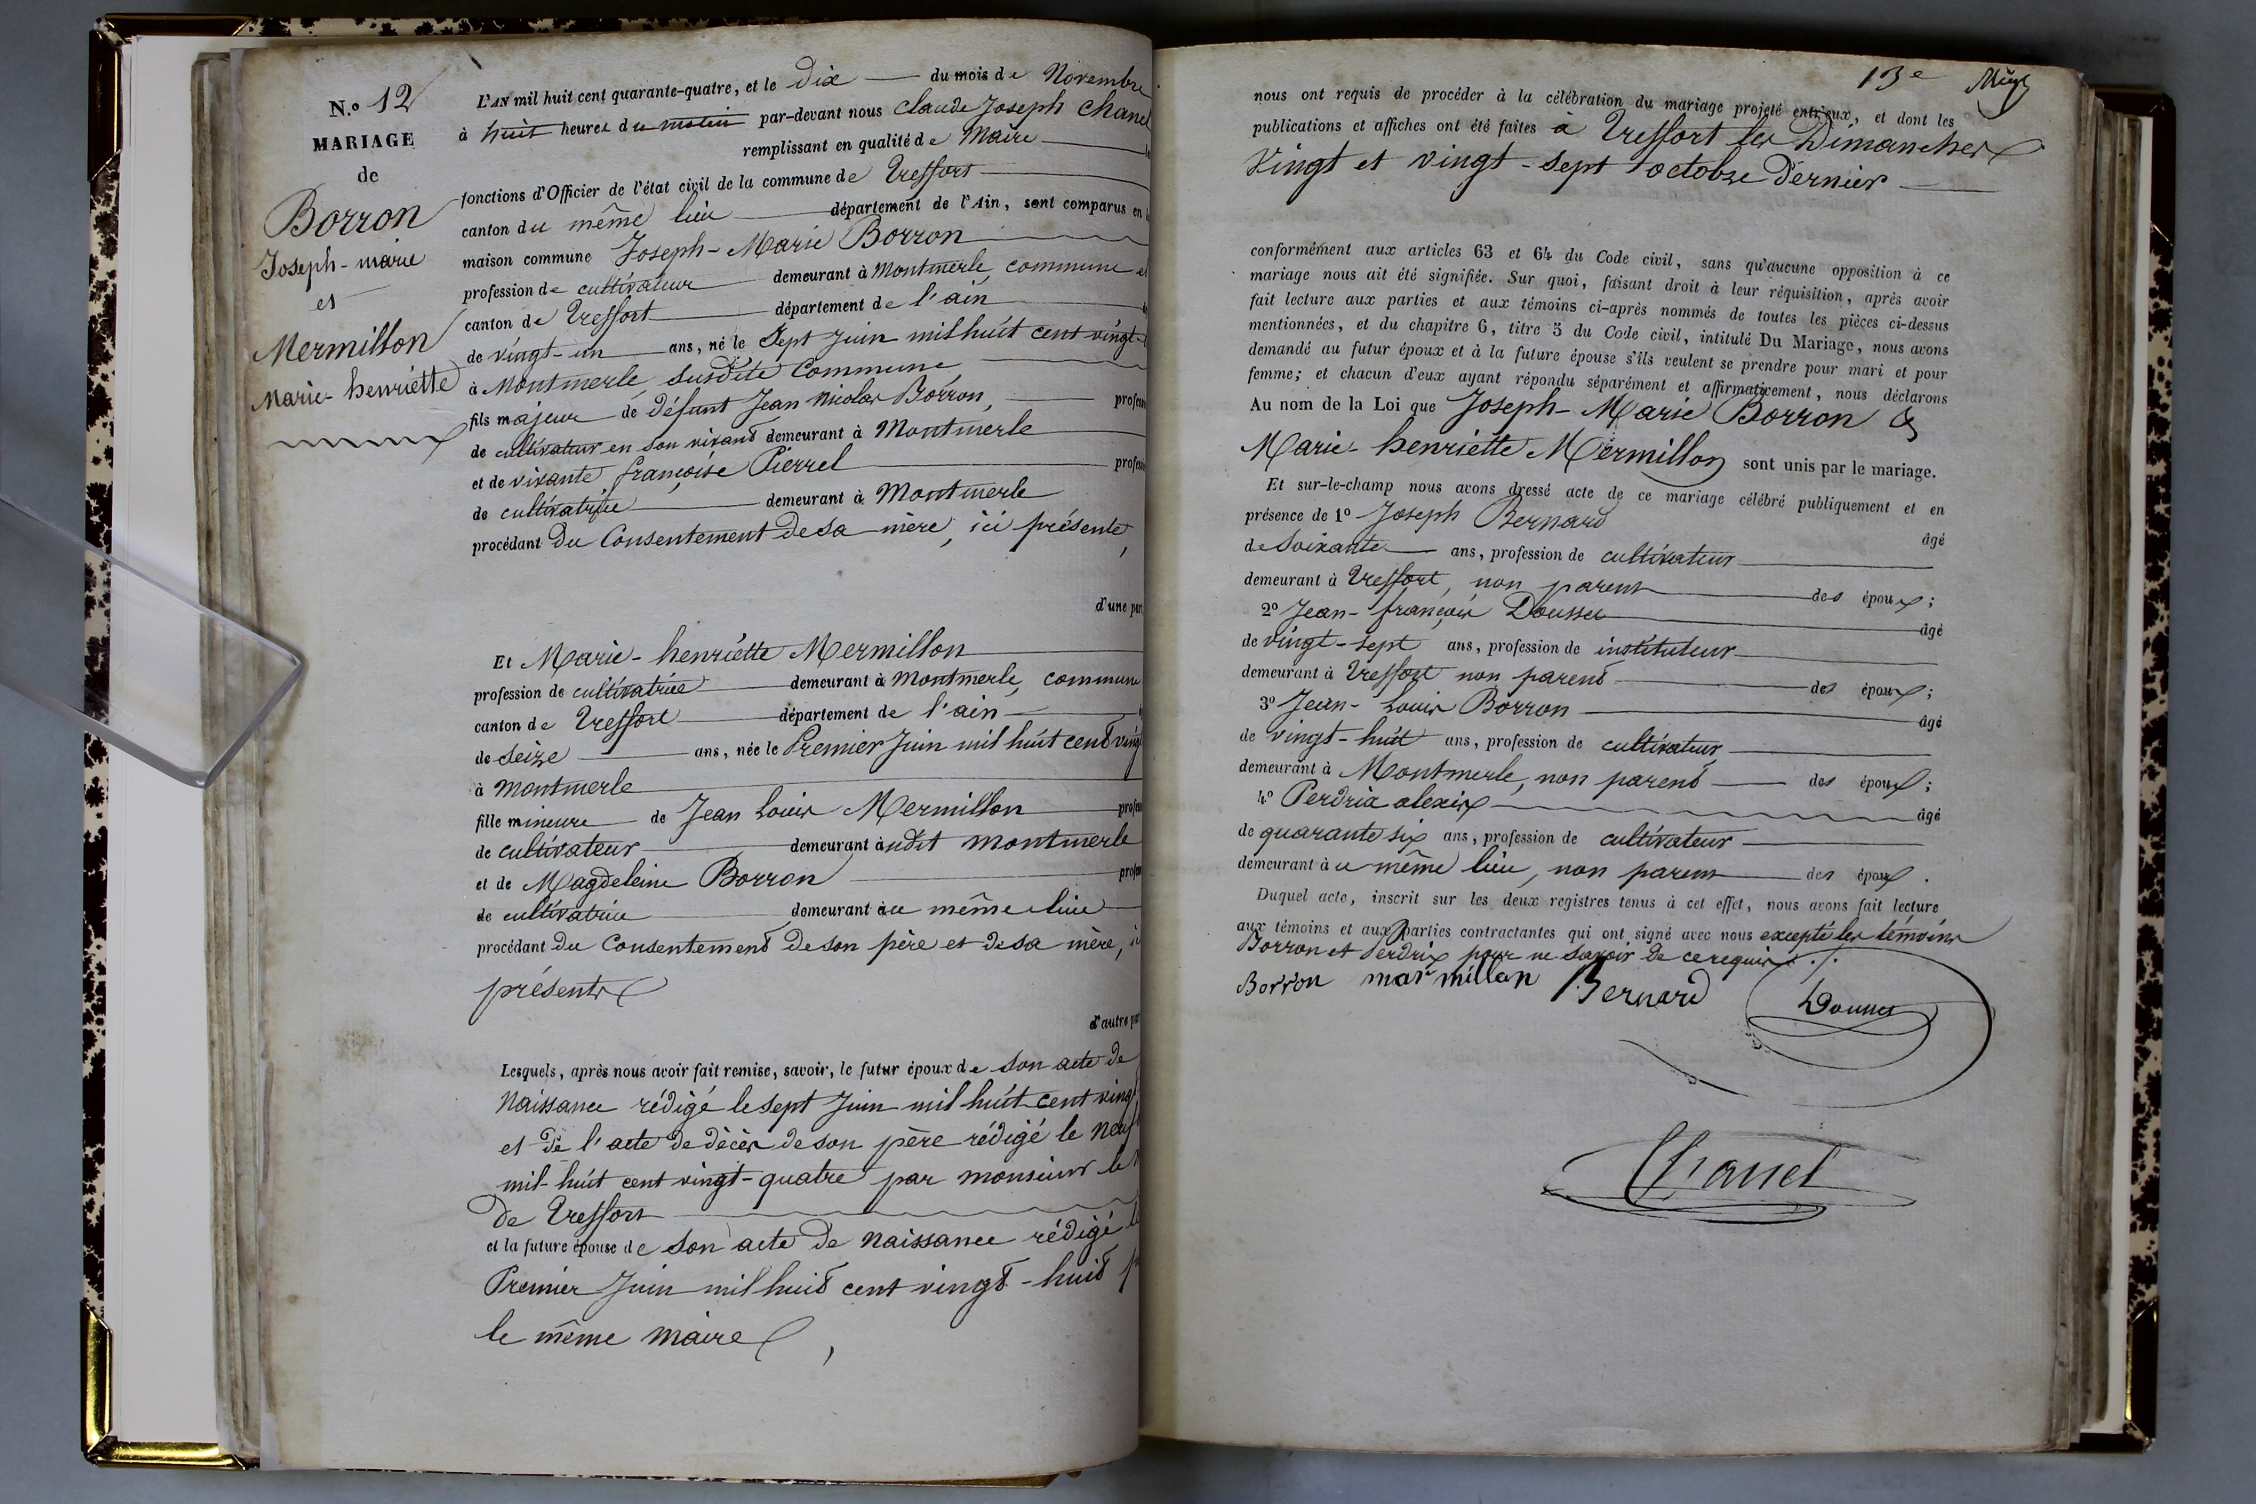 N.o 12
MARIAGE
de
Borron
Joseph-marie
et
Mermillon
Marie-henriette
L'AN mil huit cent quarante-quatre, et le Dix du mois de Novembre
à huit heures du matin par-devant nous Claude Joseph Chanel
remplissant en qualité de Maire
fonctions d'Officier de l'état civil de la commune de Treffort
canton du même lieu département de l'Ain, sont comparus en
maison commune Joseph-Marie Borron
profession de cultivateur demeurant à Montmerle, commune et
canton de Treffort département de l'ain
de vingt-un ans, né le Sept Juin mil huit cent vingt
à Montmerle susdite Commune
fils majeur de défunt Jean Nicolas Borron, profess
de cultivateur en son vivant demeurant à Montmerle
et de vivante françoise Pierrel profess
de cultivatrice demeurant à Montmerle
procédant du Consentement de sa mère, ici présente,
d'une part
Et Marie-henriette Mermillon
profession de cultivatrice demeurant à Montmerle, commune
canton de Treffort département de l'ain
de Seize ans, née le Premier Juin mil huit cent vingt
à Montmerle
fille mineure de Jean Louis Mermillon profess
de cultivateur demeurant àudit Montmerle
et de Magdeleine Borron profess
de cultivatrice demeurant àu même lieu
procédant du Consentement de son père et de sa mère, ici
présents
d'autre part
Lesquels, après nous avoir fait remise, savoir, le futur époux de son acte de
Naissance rédigé le sept Juin mil huit cent vingt
et de l'acte de décès de son père rédigé le Neuf
mil-huit cent vingt-quatre par monsieur le
de Treffort
et la future épouse de son acte de Naissance rédigé le
Premier Juin mil huit cent vingt-huit
le même maire
13e
nous ont requis de procéder à la célébration du mariage projeté entr'eux, et dont les
publications et affiches ont été faites à Treffort les Dimanches
Vingt et vingt-sept octobre Dernier
conformément aux articles 63 et 64 du Code civil, sans qu'aucune opposition à ce
mariage nous ait été signifiée. Sur quoi, faisant droit à leur réquisition, après avoir
fait lecture aux parties et aux témoins ci-après nommés de toutes les pièces ci-dessus
mentionnées, et du chapitre 6, titre 5 du Code civil, intitulé Du Mariage, nous avons
demandé au futur époux et à la future épouse s'ils veulent se prendre pour mari et pour
femme; et chacun d'eux ayant répondu séparément et affirmativement, nous déclarons
Au nom de la Loi que Joseph-Marie Borron &
Marie-henriette Mermillon sont unis par le mariage.
Et sur-le-champ nous avons dressé acte de ce mariage célébré publiquement et en
présence de 1o Joseph Bernard âgé
de Soixante ans, profession de cultivateur
demeurant à Treffort, non parent des époux;
2o Jean-françois Doussu âgé
de vingt-sept ans, profession de instituteur
demeurant à Treffort non parent des époux;
3o Jean-Louis Borron âgé
de vingt-huit ans, profession de cultivateur
demeurant à Montmerle, non parent des époux;
4o Perdrix alexis âgé
de quarante six ans, profession de cultivateur
demeurant àu même lieu, non parent des époux.
Duquel acte, inscrit sur les deux registres tenus à cet effet, nous avons fait lecture
aux témoins et aux parties contractantes qui ont signé avec nous excepté les témoins
Borron et Perdrix pour ne savoir de ce requis
Borron marmillon Bernard
Chanel